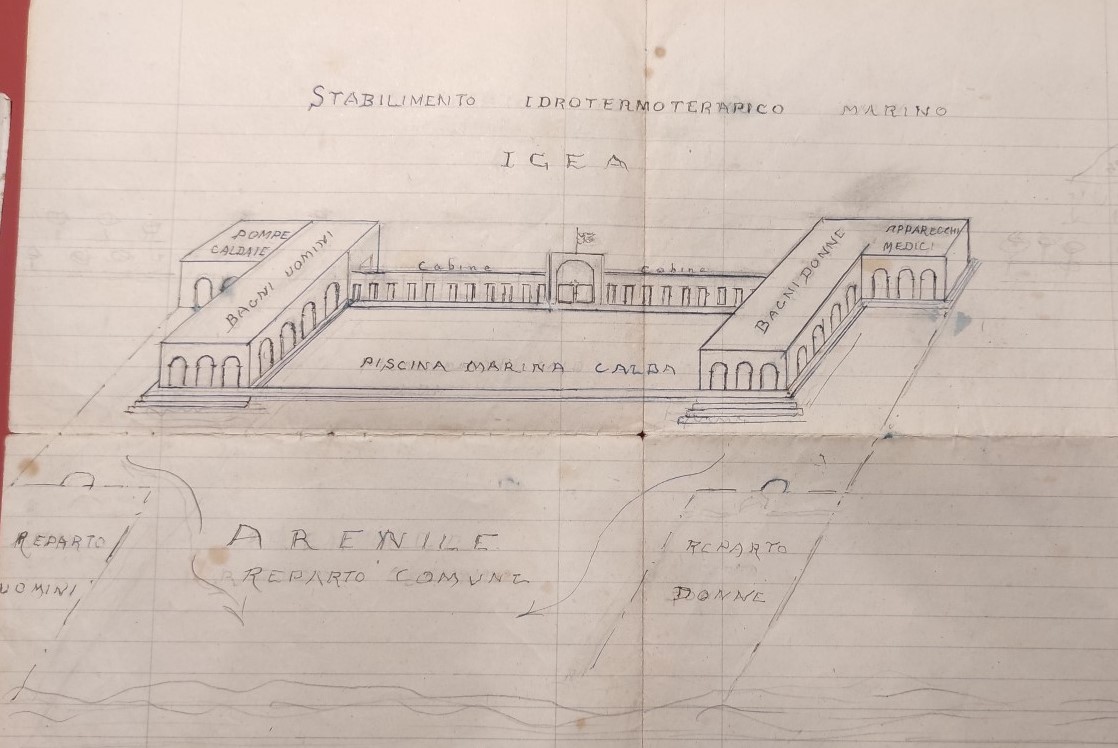 STABILIMENTO IDROTERMOTERAPICO MARINO
IGEA
POMPE
CALDAIE
BAGNI UOMINI
Cabine
Cabine
BAGNI DONNE
APPARECCHI
MEDICI
PISCINA MARINA CALDA
REPARTO
UOMINI
ARENILE
REPARTO COMUNE
REPARTO
DONNE